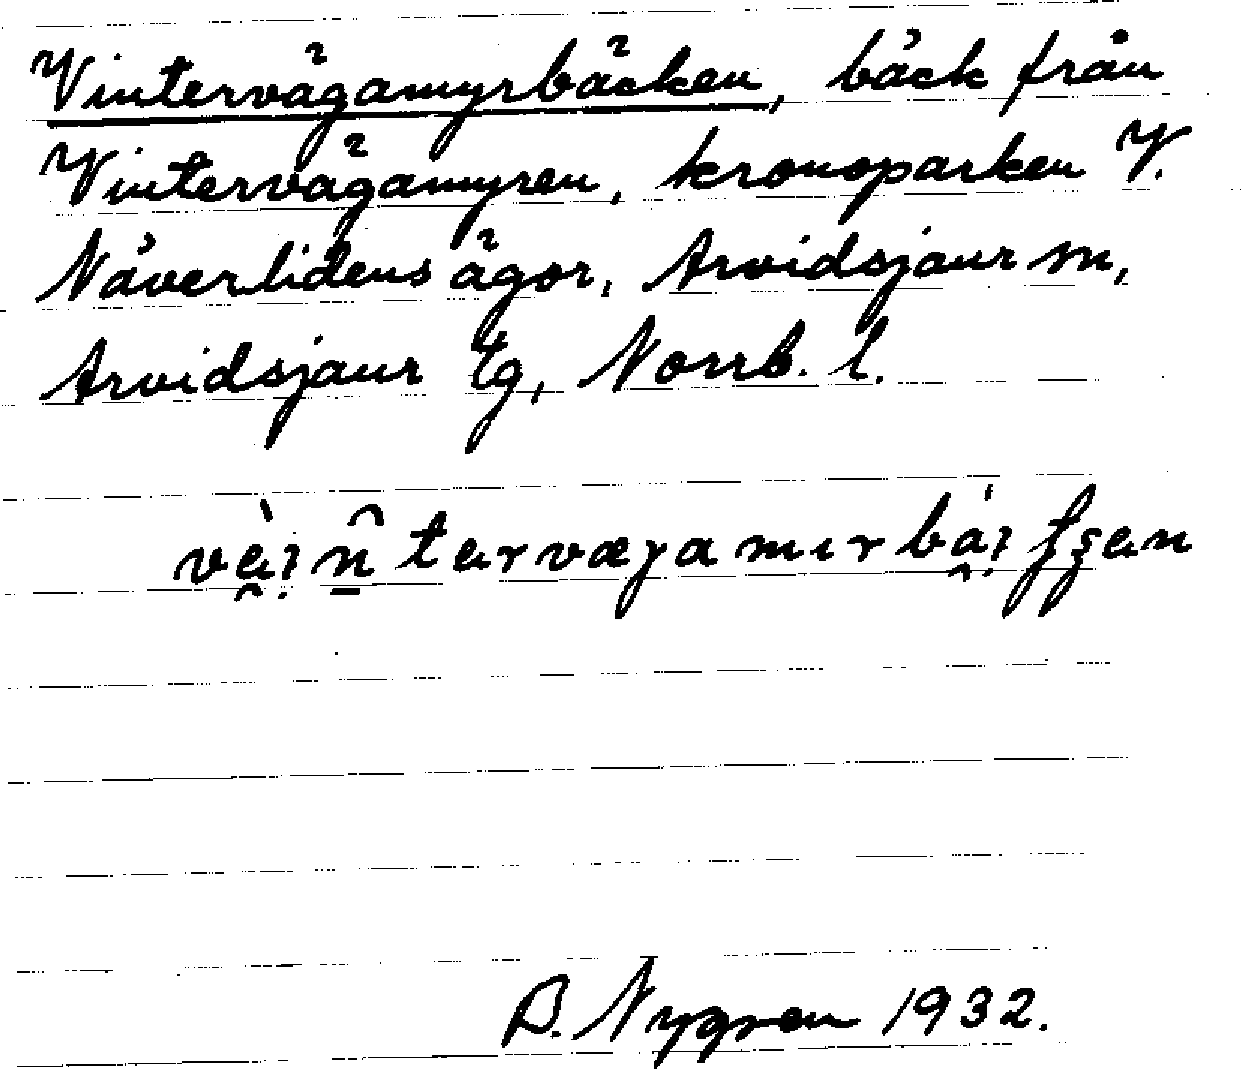 Vintervägamyrbäcken, bäck från
Vintervägamyren, kronoparken V.
Näverlidens ägor, Arvidsjaur sn,
Arvidsjaur tg, Norrb. l.
B. Nygren 1932.